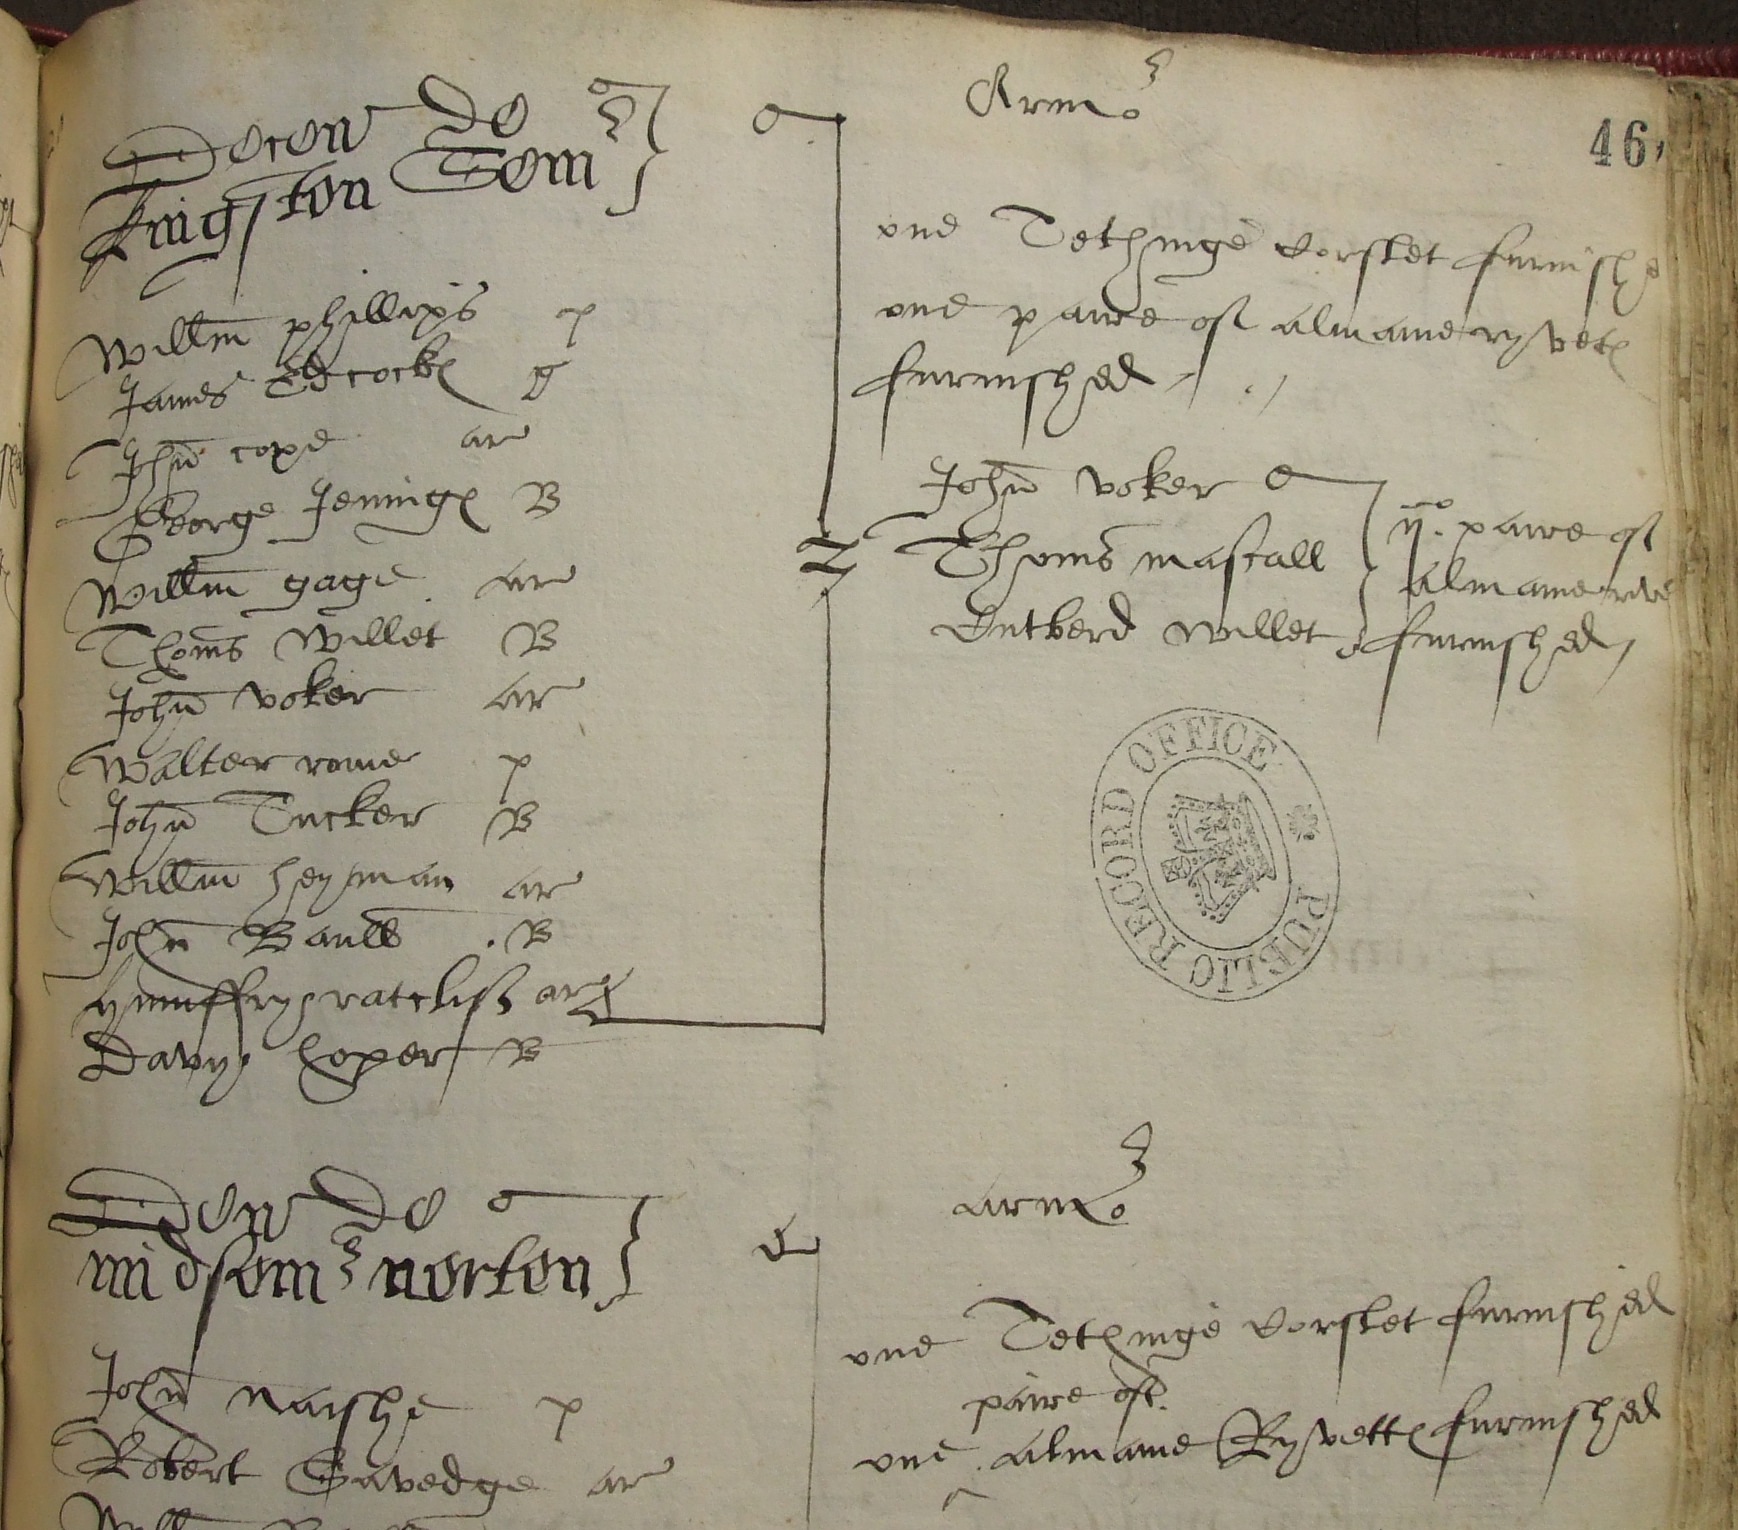 Decen de
kingston Som
Willm phillips p
James Edcock g
John cope ar
George Jening B
Willm gage ar
Thoms Willet B
John voker ar
Walter rowe p
John Tucker B
Willm heyman ar
John Baull B
humffry ratcliff ar
Davy hoper B
Arm
46
one Tethinge Corslet furnishe
one paire of almane ryvet
furnished
John voker
Thoms mascall
Cutberd Willet
ij paire of
almane rive
furnished
PUBLIC RECORD OFFICE
Decen de
midsom norton
John naishe p
Robert Savedge ar
Willm
arm
one Tethinge Corslet furnished
paire of
one almane Ryvett furnished